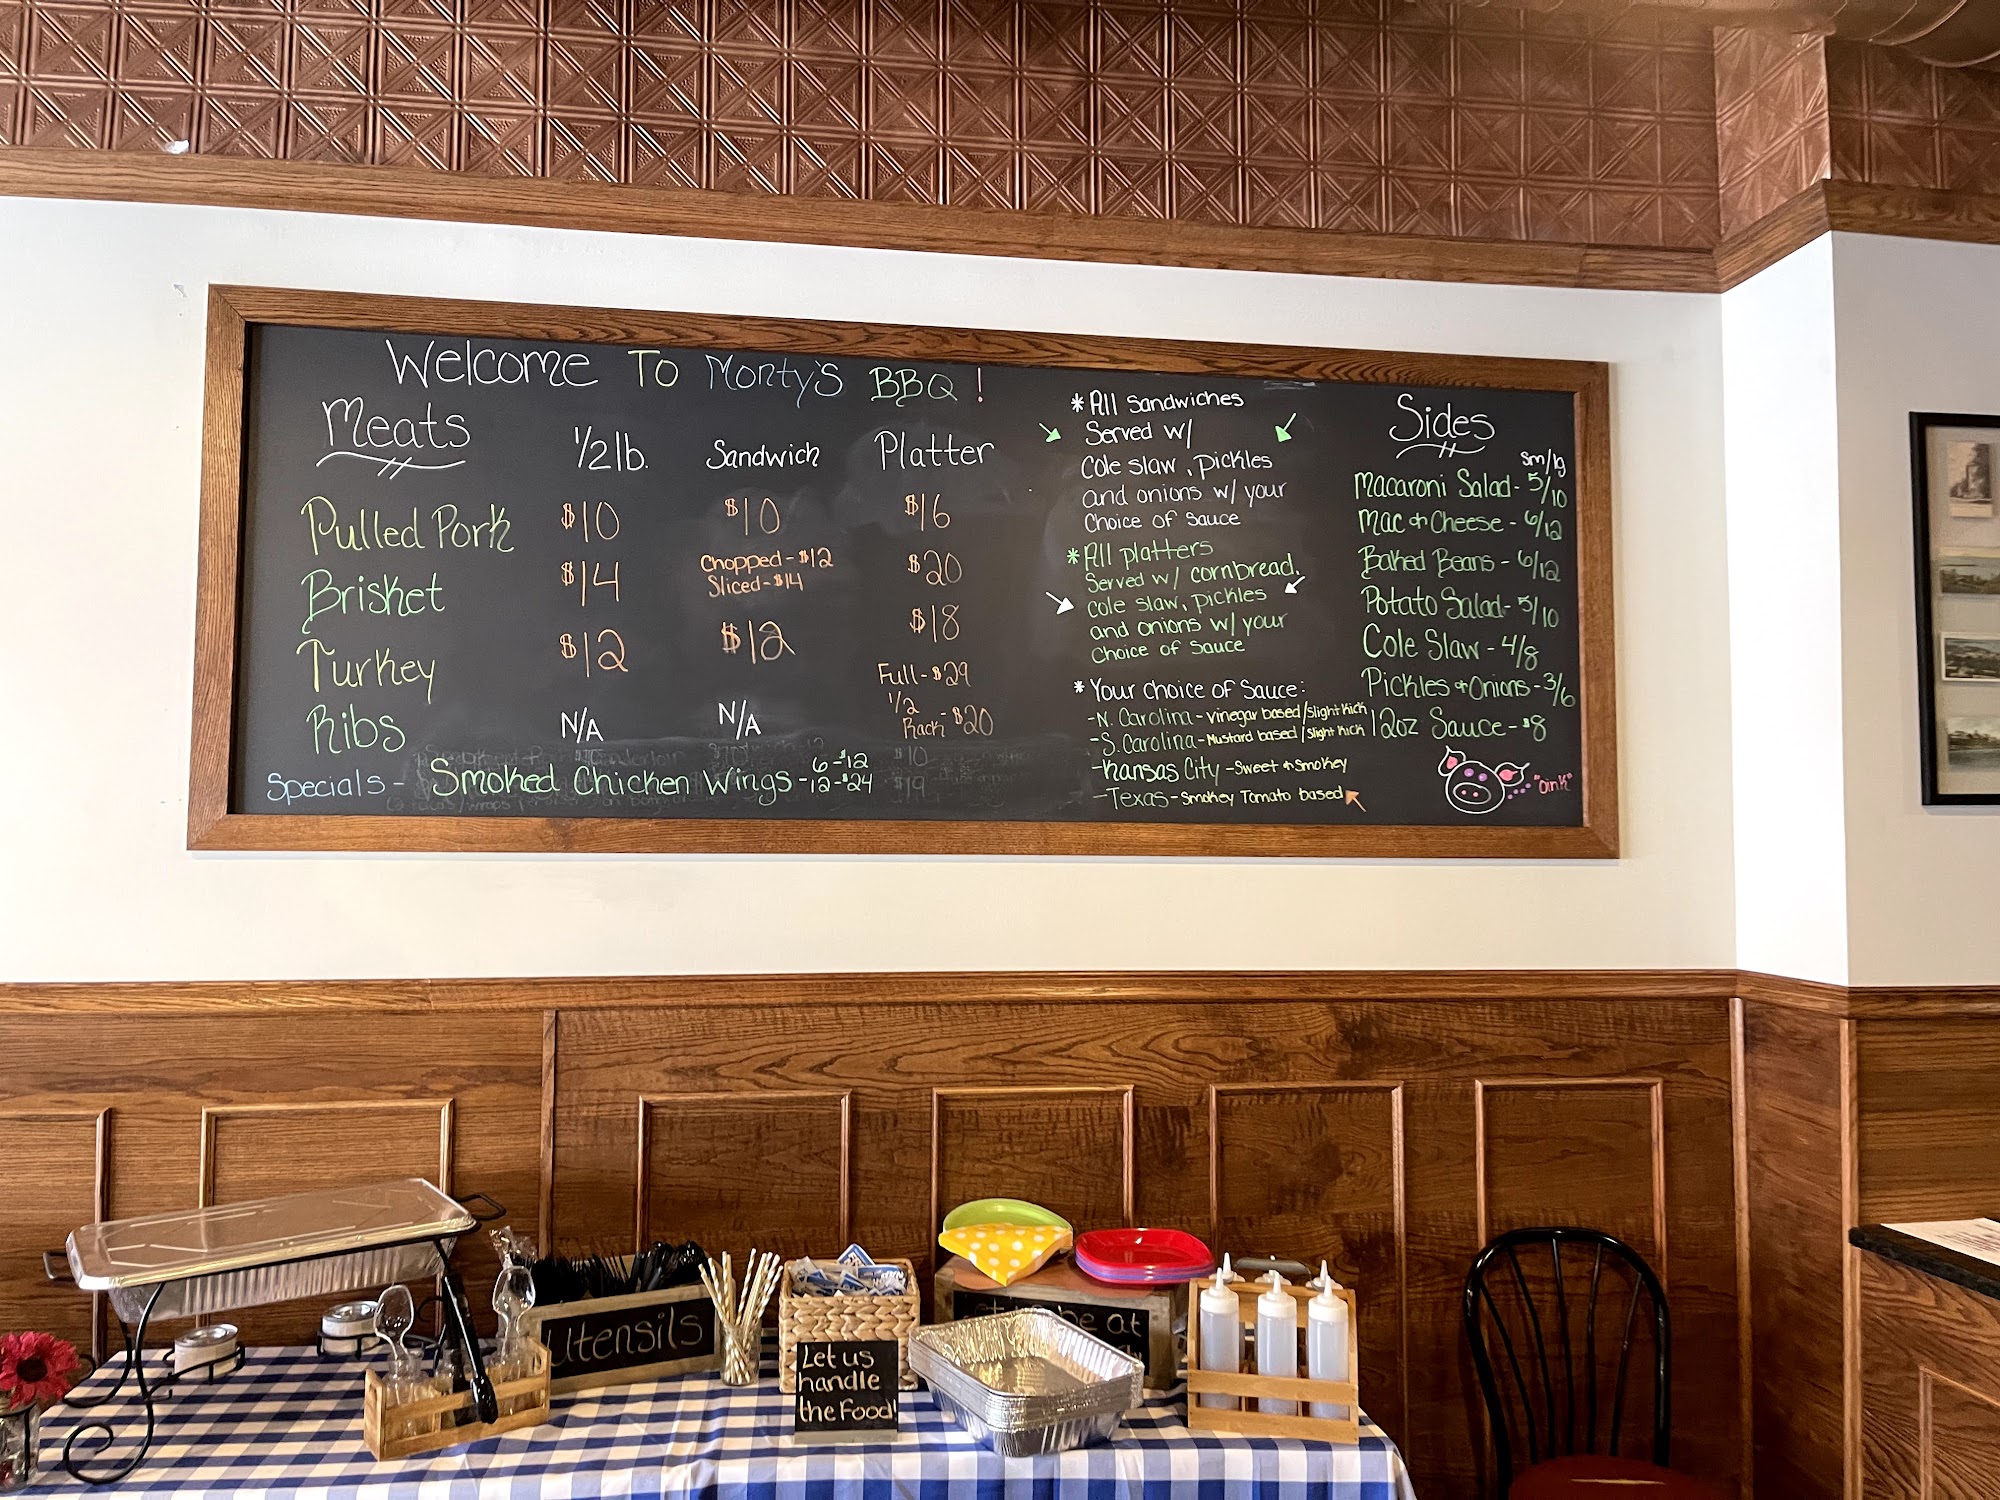 Welcome To Monty's BBQ!
Meats 1/2 lb. Sandwich Platter
Pulled Pork $10 $10 $16
Brisket $14 Chopped - $12 $20
Sliced - $14
Turkey $12 $12 $18
Ribs N/A N/A Full - $29
1/2 Rack - $20
Specials - Smoked Chicken Wings - 6 - $12
12 - $24
$10
$19
* All Sandwiches
Served w/
Cole slaw, pickles
and onions w/ your
Choice of Sauce
* All platters
Served w/ cornbread,
cole slaw, pickles
and onions w/ your
Choice of Sauce
* Your choice of Sauce:
- N. Carolina - vinegar based/Slight Kick
- S. Carolina - Mustard based/Slight Kick
- Kansas City - Sweet & Smokey
- Texas - Smokey Tomato based
Sides
Sm/lg
Macaroni Salad - 5/10
Mac & Cheese - 6/12
Baked Beans - 6/12
Potato Salad - 5/10
Cole Slaw - 4/8
Pickles & Onions - 3/6
12oz Sauce - $8
"oink"
Utensils
Let us
handle
the Food!
be at